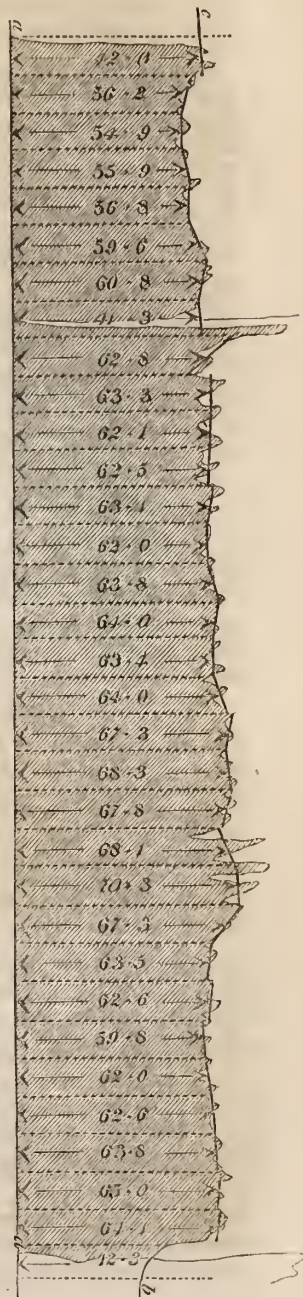 56·2
54·9
55·9
56·8
59·6
60·8
41·3
62·8
63·3
62·1
62·5
63·1
62·0
63·8
64·0
63·4
64·0
67·3
68·3
67·8
68·1
70·3
67·3
63·5
62·6
59·8
62·0
62·6
63·8
65·0
64·1
12·3
b